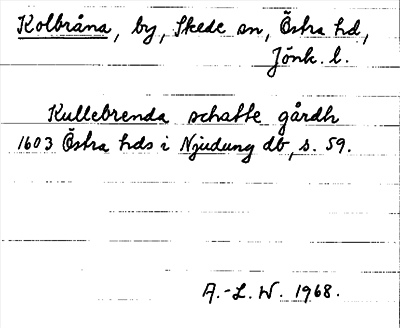 Kolbråna, by, Skede sn, Östra hd,
Jönk. l.
Kullebrenda schatte gårdh
1603 Östra hds i Njudung db, s. 59.
A.-L. W. 1968.